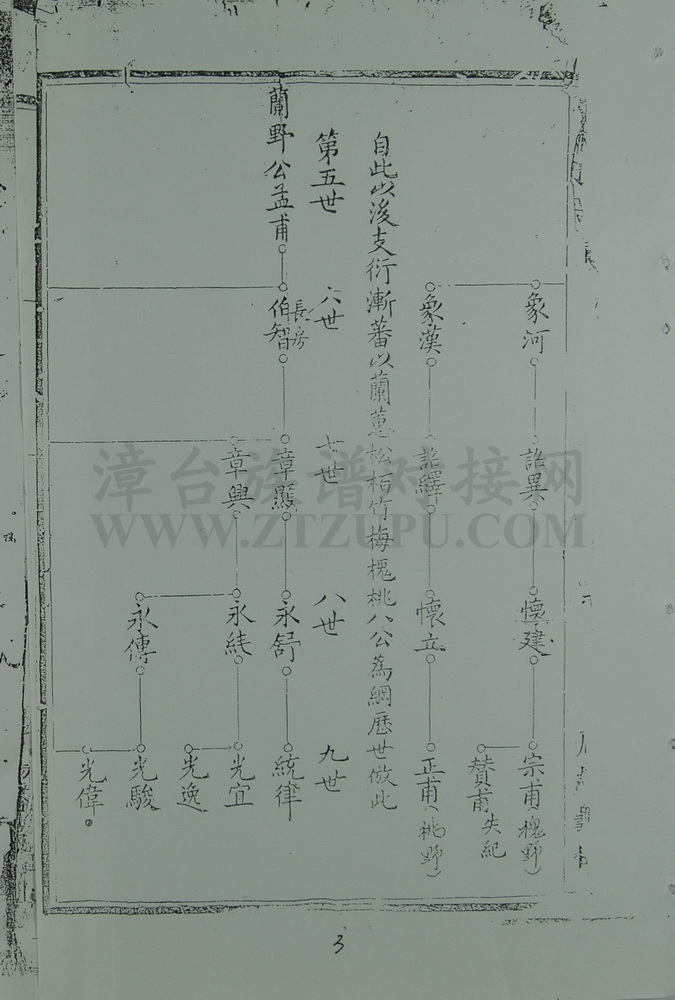 象河
詒異
懷建
宗甫（槐野）
贊甫失紀
象漢
詒繹
懷立
正甫（桃野）
自此以後支衍漸蕃以蘭蕙松栢竹梅槐桃八公為綱歷世倣此
第五世
六世
七世
八世
九世
蘭野公孟甫
長房
伯智
章顯
永舒
統律
章興
永絓
光宜
光逸
永傳
光駿
光偉
3
漳台族谱对接网
WWW.ZTZUPU.COM